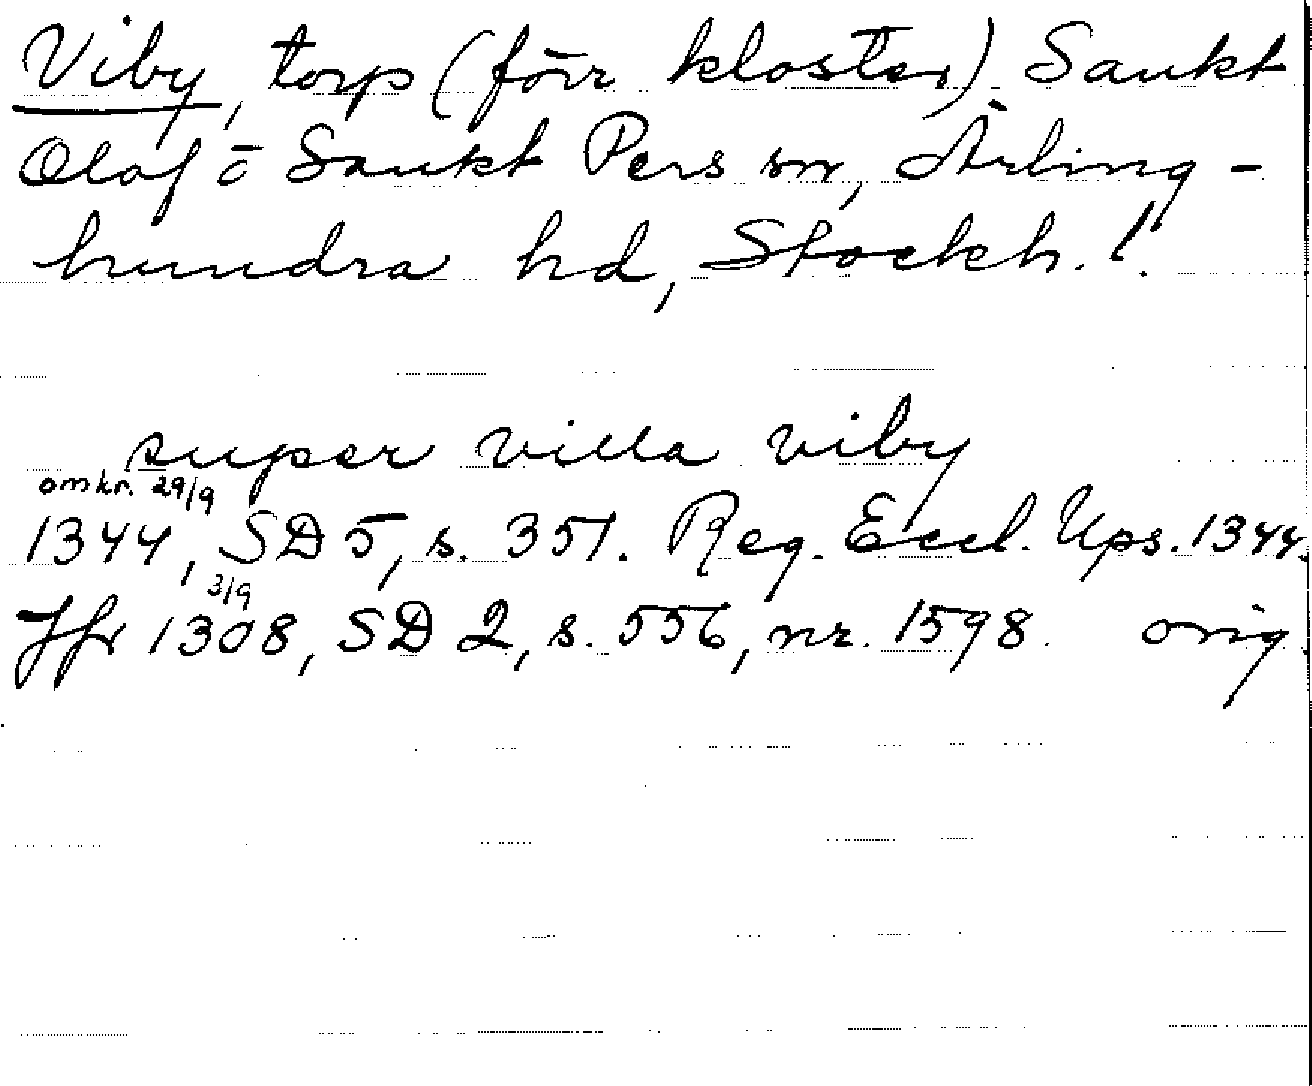 Viby, torp (förr kloster) Sankt
Olof o Sankt Pers sn, Ärling-
hundra hd, Stockh. l.
super villa viby
omkr. 29/9
1344, SD 5, s. 351. Reg. Eccl. Ups. 1344.
3/9
Jfr 1308, SD 2, s. 556, nr. 1598. orig.